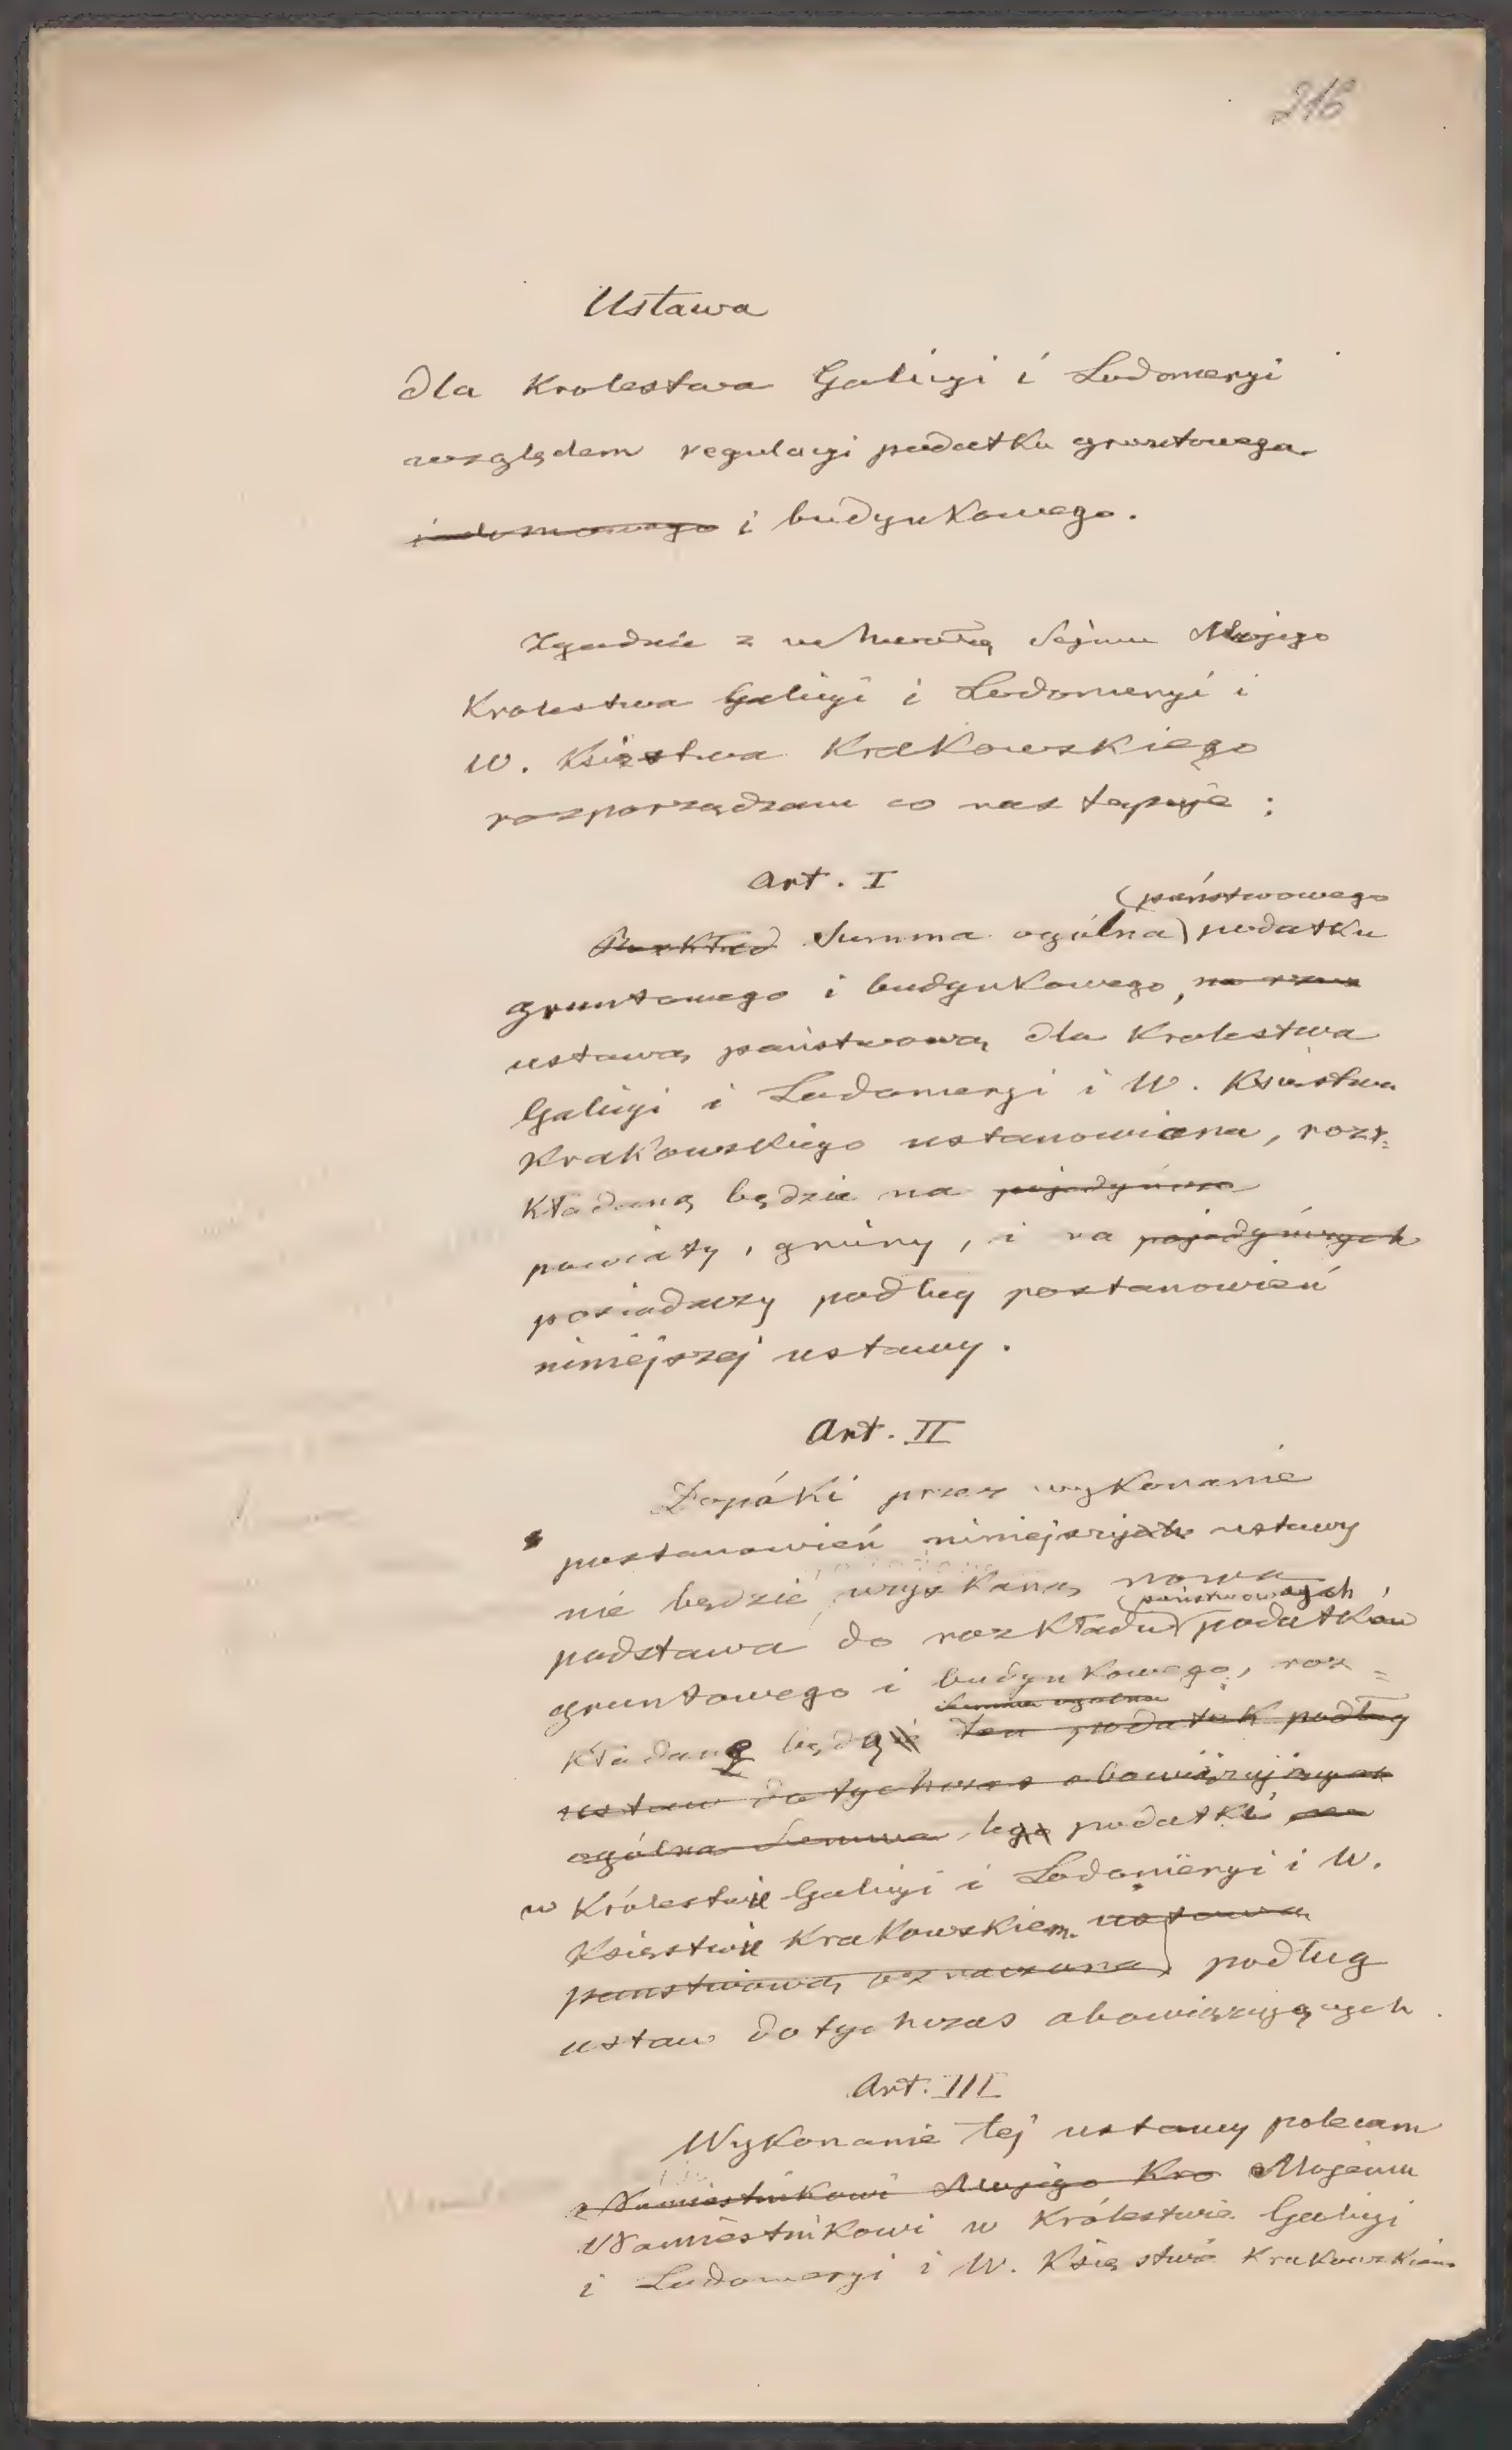 216
Ustawa
dla Krolestwa Galicyi i Lodomeryi
względem regulacyi podatku gruntowego
i domowego i budynkowego.
Zgodnie z uchwałą Sejmu Mojego
Krolestwa Galicyi i Lodomeryi i
W. Księstwa Krakowskiego
rozporządzam co następuje :
Art. I
(państwowego
Rozkład Summa ogólna) podatku
gruntowego i budynkowego, na
ustawą państwową dla Krolestwa
Galicyi i Lodomeryi i W. Księstwa
Krakowskiego ustanowiona, roz=
kładaną będzie na pojedyńcze
powiaty, gminy, i na pojedyńczych
posiadaczy podług postanowień
niniejszej ustawy.
Art. II
Dopóki przez wykonanie
postanowień niniejszych ustawy
nie będzie uzyskaną nowa
(państwowych
podstawa do rozkładu) podatków
gruntowego i budynkowego, roz=
Summa ogólna
kładane będą ten podatek podług
ustaw dotychczas obowiązujących
ogólna Summa tego podatki na
w Królestwie Galicyi i Lodomeryi i W.
Księstwie Krakowskiem ustawą
państwową oznaczona) podług
ustaw dotychczas obowiązujących.
Art. III
Wykonanie tej ustawy polecam
Namiestnikowi Mojego Kro Mojemu
Namiestnikowi w Królestwie Galicyi
i Lodomeryi i W. Księstwie Krakowskiem